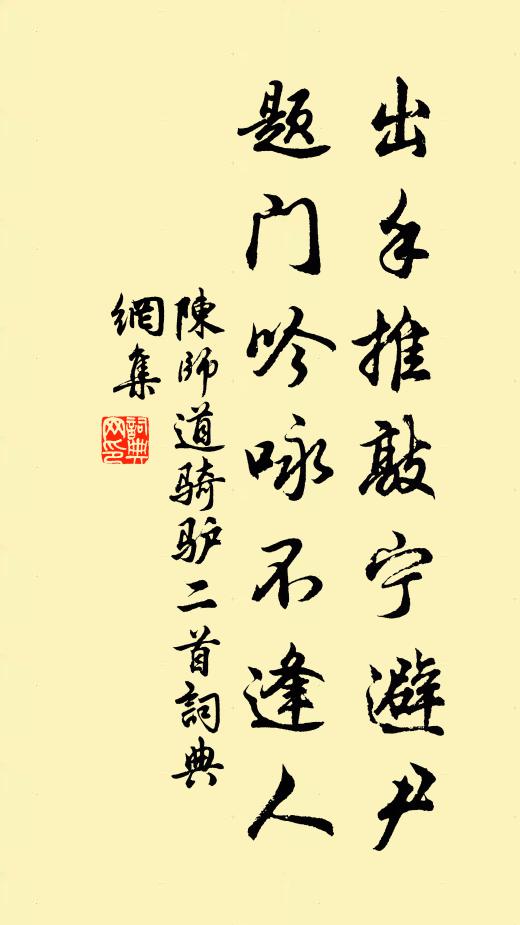 出手推敲宁避尹
题门吟咏不逢人
陳師道骑驴二首詞典
網集
詞典
网印